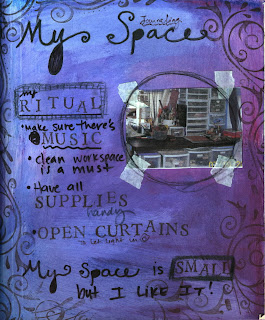 My Space
my
RITUAL
• make sure there's
MUSIC
• clean workspace
is a must
• Have all
SUPPLIES
handy
• OPEN CURTAINS
to let light in
My Space is SMALL
but I LIKE IT!